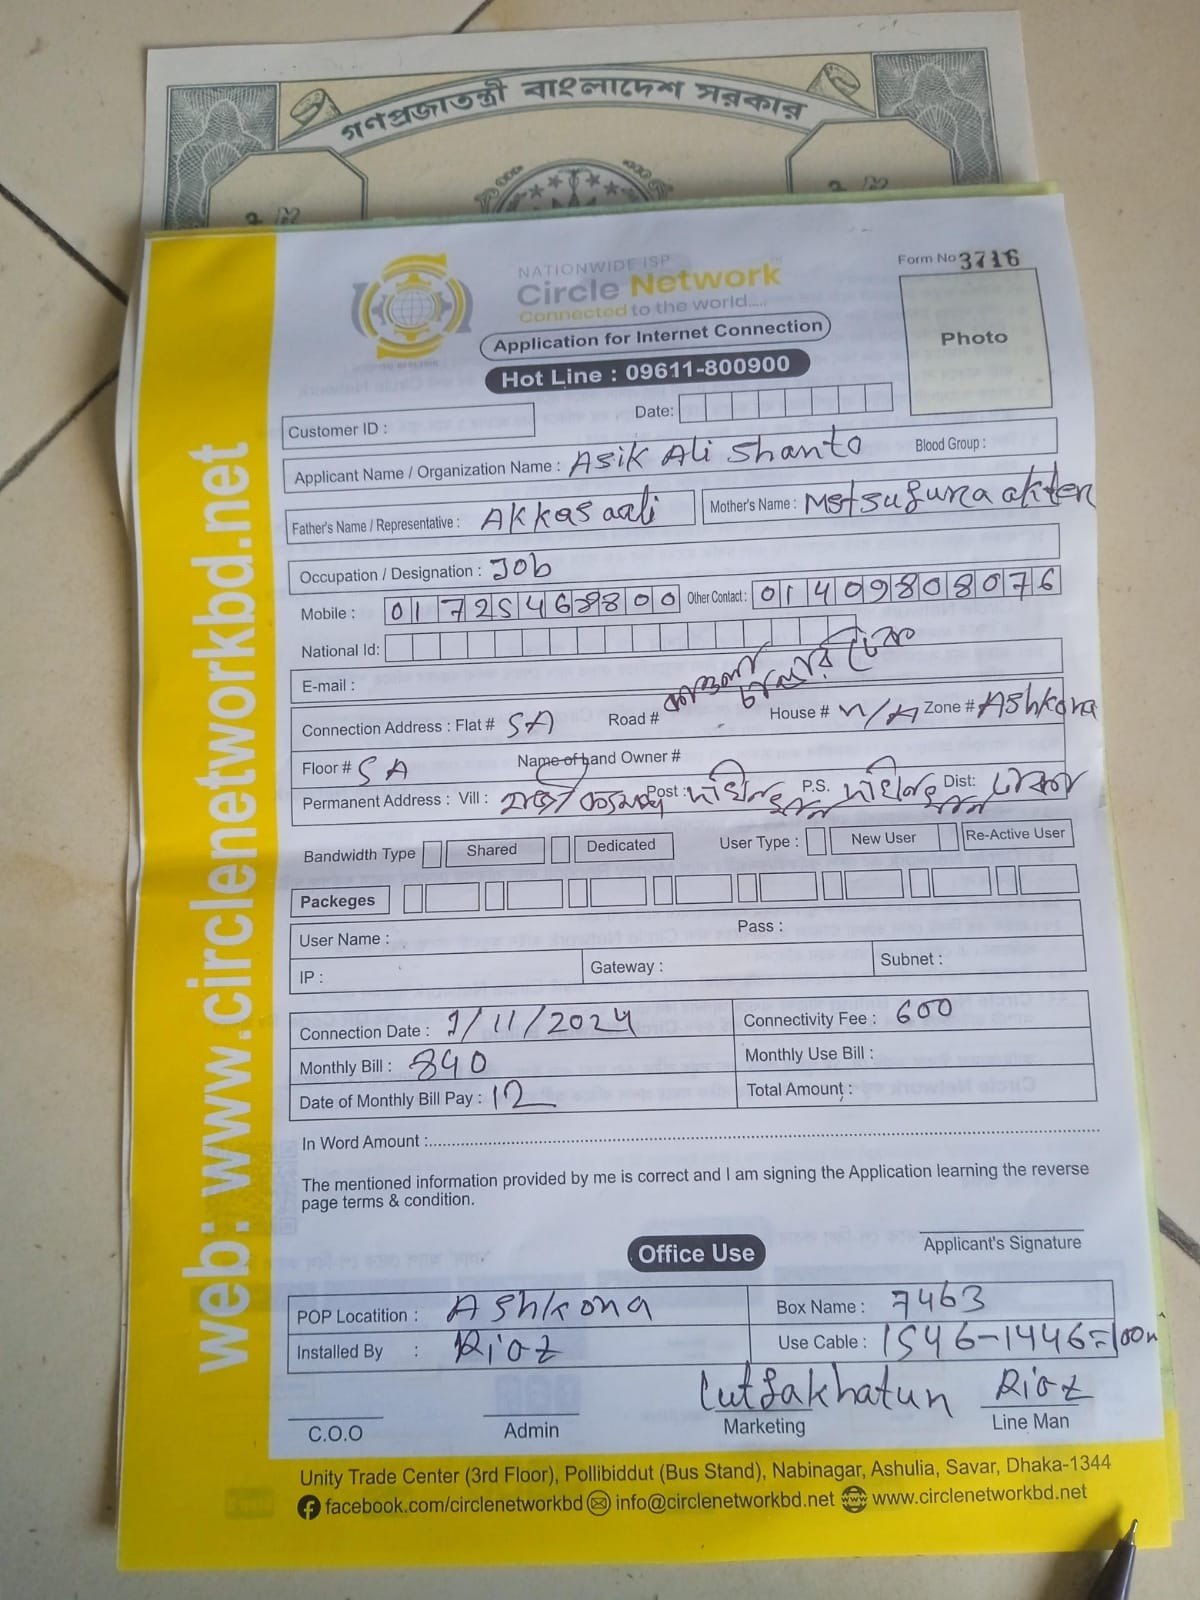 গণপ্রজাতন্ত্রী বাংলাদেশ সরকার
Form No 3716
NATIONWIDE ISP
Circle Network
Connected to the world.....
Application for Internet Connection
Hot Line : 09611-800900
Photo
Customer ID :
Date:
Applicant Name / Organization Name : Asik Ali Shanto Blood Group :
Father's Name / Representative : Akkas aali Mother's Name :
Occupation / Designation : Job
Mobile : 01725468800 Other Contact : 01409808076
National Id:
E-mail :
Connection Address : Flat # 5A Road # House # N/A Zone # Ashkona
Floor # 5A Name of Land Owner #
Permanent Address : Vill : Post : P.S. Dist: ঢাকা
Bandwidth Type Shared Dedicated User Type : New User Re-Active User
Packeges
User Name : Pass :
IP : Gateway : Subnet :
Connection Date : 1/11/2024 Connectivity Fee : 600
Monthly Bill : 840 Monthly Use Bill :
Date of Monthly Bill Pay : 12 Total Amount :
In Word Amount :
The mentioned information provided by me is correct and I am signing the Application learning the reverse
page terms & condition.
Applicant's Signature
Office Use
POP Locatition : Ashkona Box Name : 7463
Installed By : Riaz Use Cable : 1546-1446=100m
Lutfakhatun Riaz
C.O.O Admin Marketing Line Man
Unity Trade Center (3rd Floor), Pollibiddut (Bus Stand), Nabinagar, Ashulia, Savar, Dhaka-1344
facebook.com/circlenetworkbd info@circlenetworkbd.net www.circlenetworkbd.net
web: www.circlenetworkbd.net